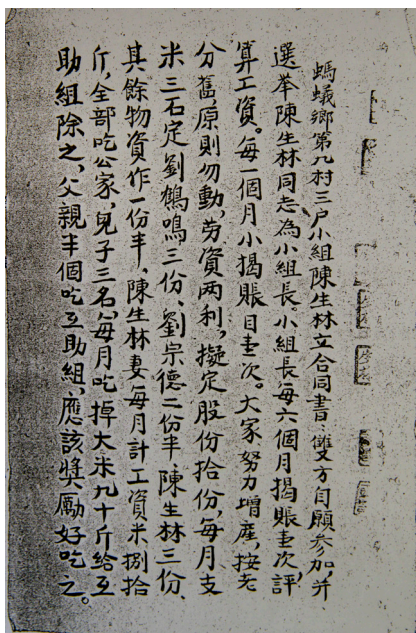 螞蟻鄉第九村三户小組陳生林立合同書：雙方自願参加，并
選举陳生林同志為小組長。小組長每六個月揭賬壹次，評
算工資。每一個月小揭賬目壹次。大家努力增產，按老
分舊原則勿動，劳資两利，擬定股份拾份，每月支
米三石定劉鶴鳴三份、劉宗德二份半、陳生林三份、
其餘物資作一份半、陳生林妻每月計工資米捌拾
斤，全部吃公家，兒子三名，每月吃掉大米九十斤給互
助組除之，父親半個吃互助組，應該獎勵好吃之。